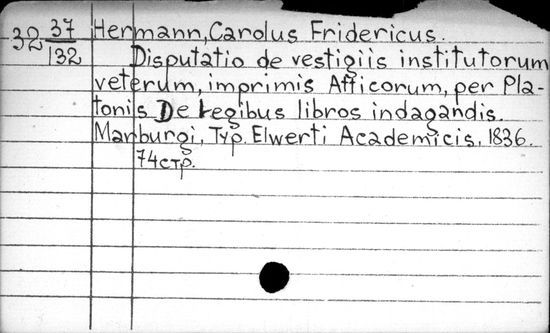 32 37/132 Hermann, Carolus Fridericus.
Disputatio de vestigiis institutorum
veterum, imprimis Atticorum, per Pla-
tonis De legibus libros indagandis.
Marburgi, Typ. Elwerti Academicis, 1836.
74 стр.